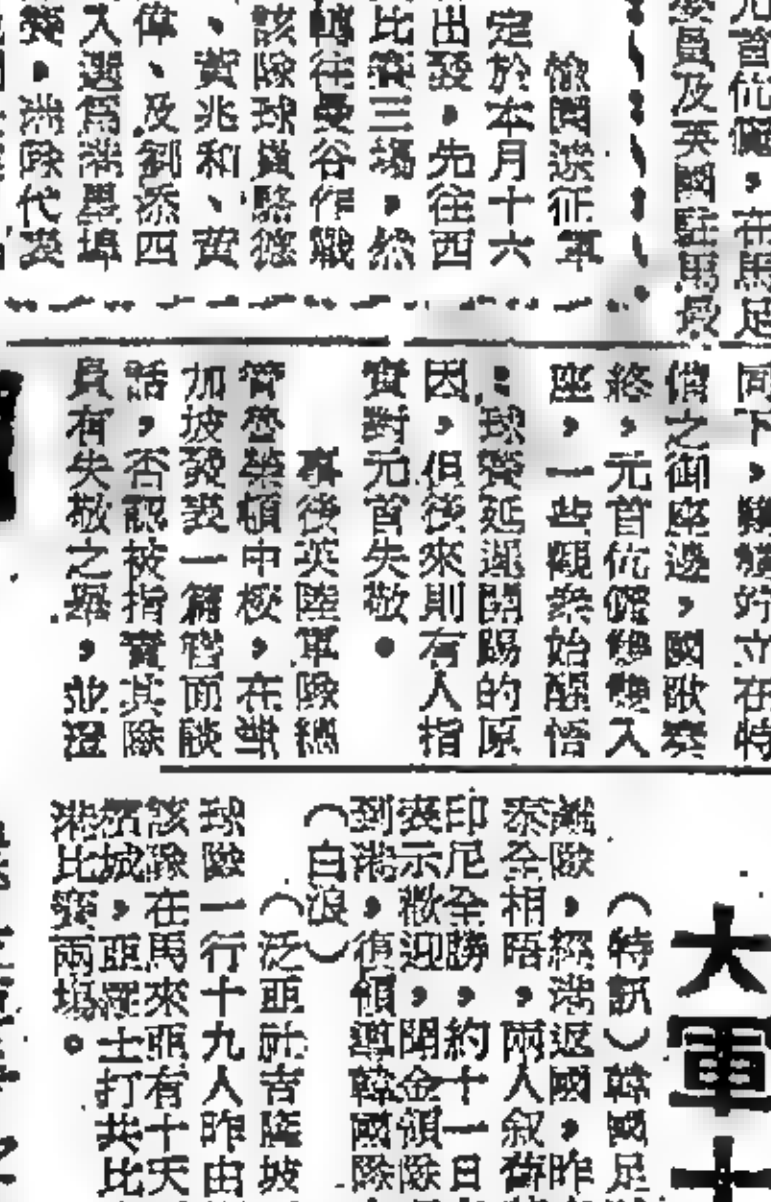 元首伉儷,在馬足
委員及英國駐馬最
愉園遠征軍
定於本月十六
出發,先往西
比賽三場,然
轉往曼谷作戰
該隊球員駱德
、黃兆和、黃
偉、及劉添四
入選為港星埠
賽,港隊代表
同下,
好立在特
備之御座邊,國歌奏
終,元首伉儷雙雙入
座,一些觀眾始醒悟
:球賽延遲開踢的原
因,但後來則有人指
實對元首失敬。
事後英陸軍隊總
管登榮頓中校,在
加坡發表一篇書面談
話,否認被指責其隊
員有失敬之舉,並澄
大軍
(特訊)韓國足
離隊,經港返國,昨
泰全相晤,兩人叙舊
印尼全勝,約十一日
表示歡迎,聞金領隊
到港,復領導韓國隊
(白浪)
(泛亞社吉隆坡
球隊一行十九人昨由
該隊在馬來亞有十天
檳城,亞羅士打共比
港比賽兩場。